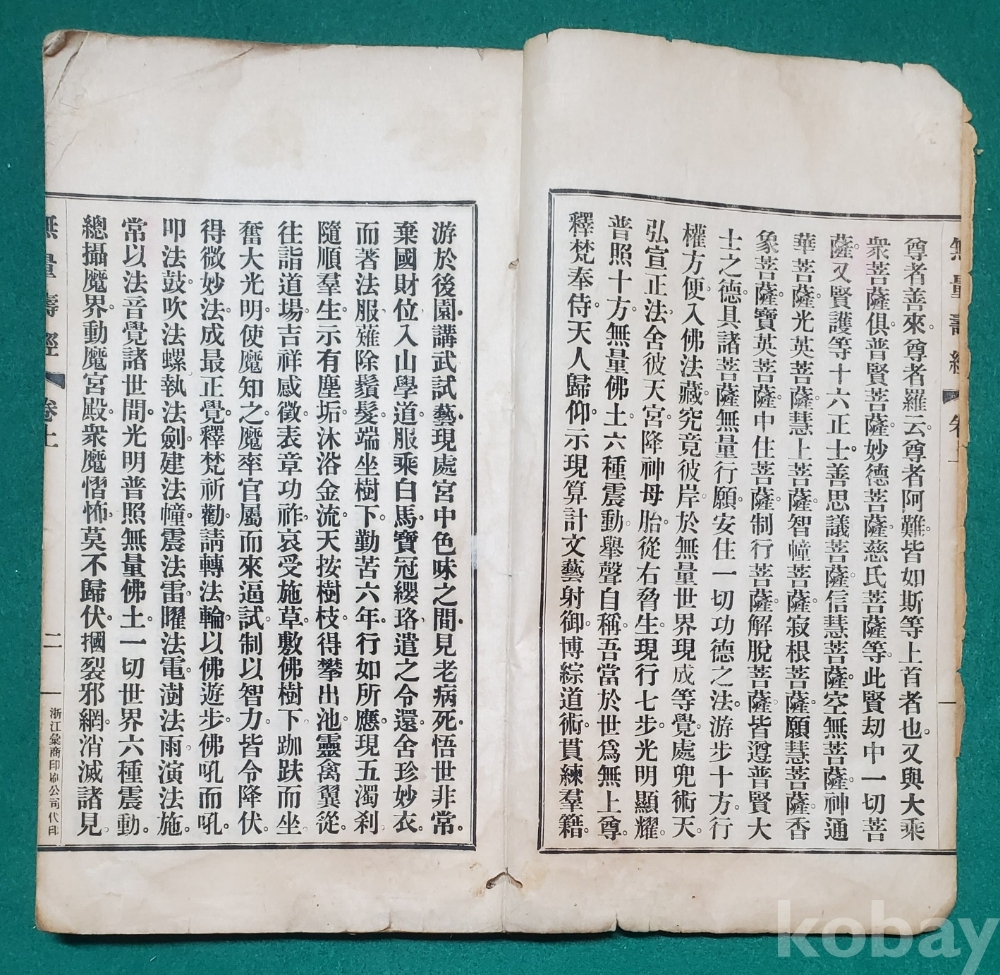 無量壽經
卷上
一
尊者善來。尊者羅云。尊者阿難。皆如斯等上首者也。又與大乘
衆菩薩俱。普賢菩薩。妙德菩薩。慈氏菩薩等。此賢劫中一切菩
薩。又賢護等十六正士。善思議菩薩。信慧菩薩。空無菩薩。神通
華菩薩。光英菩薩。慧上菩薩。智幢菩薩。寂根菩薩。願慧菩薩。香
象菩薩。寶英菩薩。中住菩薩。制行菩薩。解脫菩薩。皆遵普賢大
士之德。具諸菩薩無量行願。安住一切功德之法。游步十方。行
權方便。入佛法藏。究竟彼岸。於無量世界現成等覺。處兜術天。
弘宣正法。舍彼天宮。降神母胎。從右脅生。現行七步。光明顯耀。
普照十方無量佛土。六種震動。舉聲自稱。吾當於世爲無上尊。
釋梵奉侍。天人歸仰。示現算計文藝射御。博綜道術。貫練羣籍。
游於後園。講武試藝。現處宮中色味之間。見老病死。悟世非常。
棄國財位。入山學道。服乘白馬。寶冠纓珞。遣之令還。舍珍妙衣。
而著法服。薙除鬚髮。端坐樹下。勤苦六年。行如所應。現五濁刹。
隨順羣生。示有塵垢。沐浴金流。天按樹枝。得攀出池。靈禽翼從。
往詣道場。吉祥感徵。表章功祚。哀受施草。敷佛樹下。跏趺而坐。
奮大光明。使魔知之。魔率官屬。而來逼試。制以智力。皆令降伏。
得微妙法。成最正覺。釋梵祈勸。請轉法輪。以佛遊步。佛吼而吼。
叩法鼓。吹法螺。執法劍。建法幢。震法雷。曜法電。澍法雨。演法施。
常以法音。覺諸世間。光明普照無量佛土。一切世界六種震動。
總攝魔界。動魔宮殿。衆魔慴怖。莫不歸伏。摑裂邪網。消滅諸見。
無量壽經
卷上
二
浙江彙商印刷公司代印
kobay